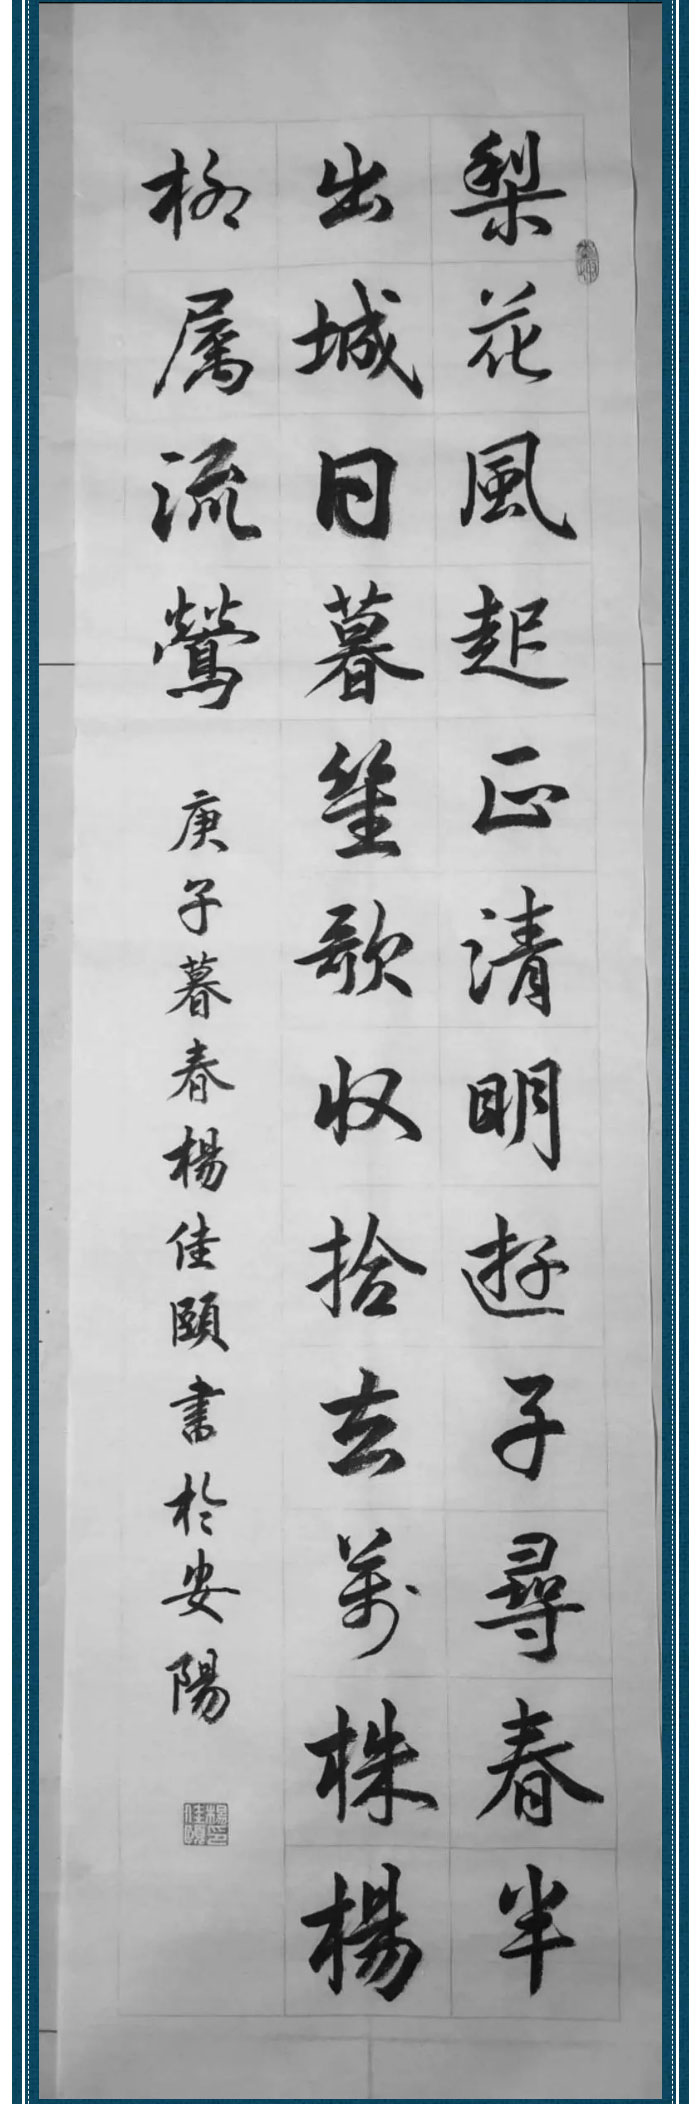 梨花風起正清明遊子尋春半
出城日暮笙歌收拾去萬株楊
柳屬流鶯
庚子暮春楊佳頤書於安陽
楊佳頤印